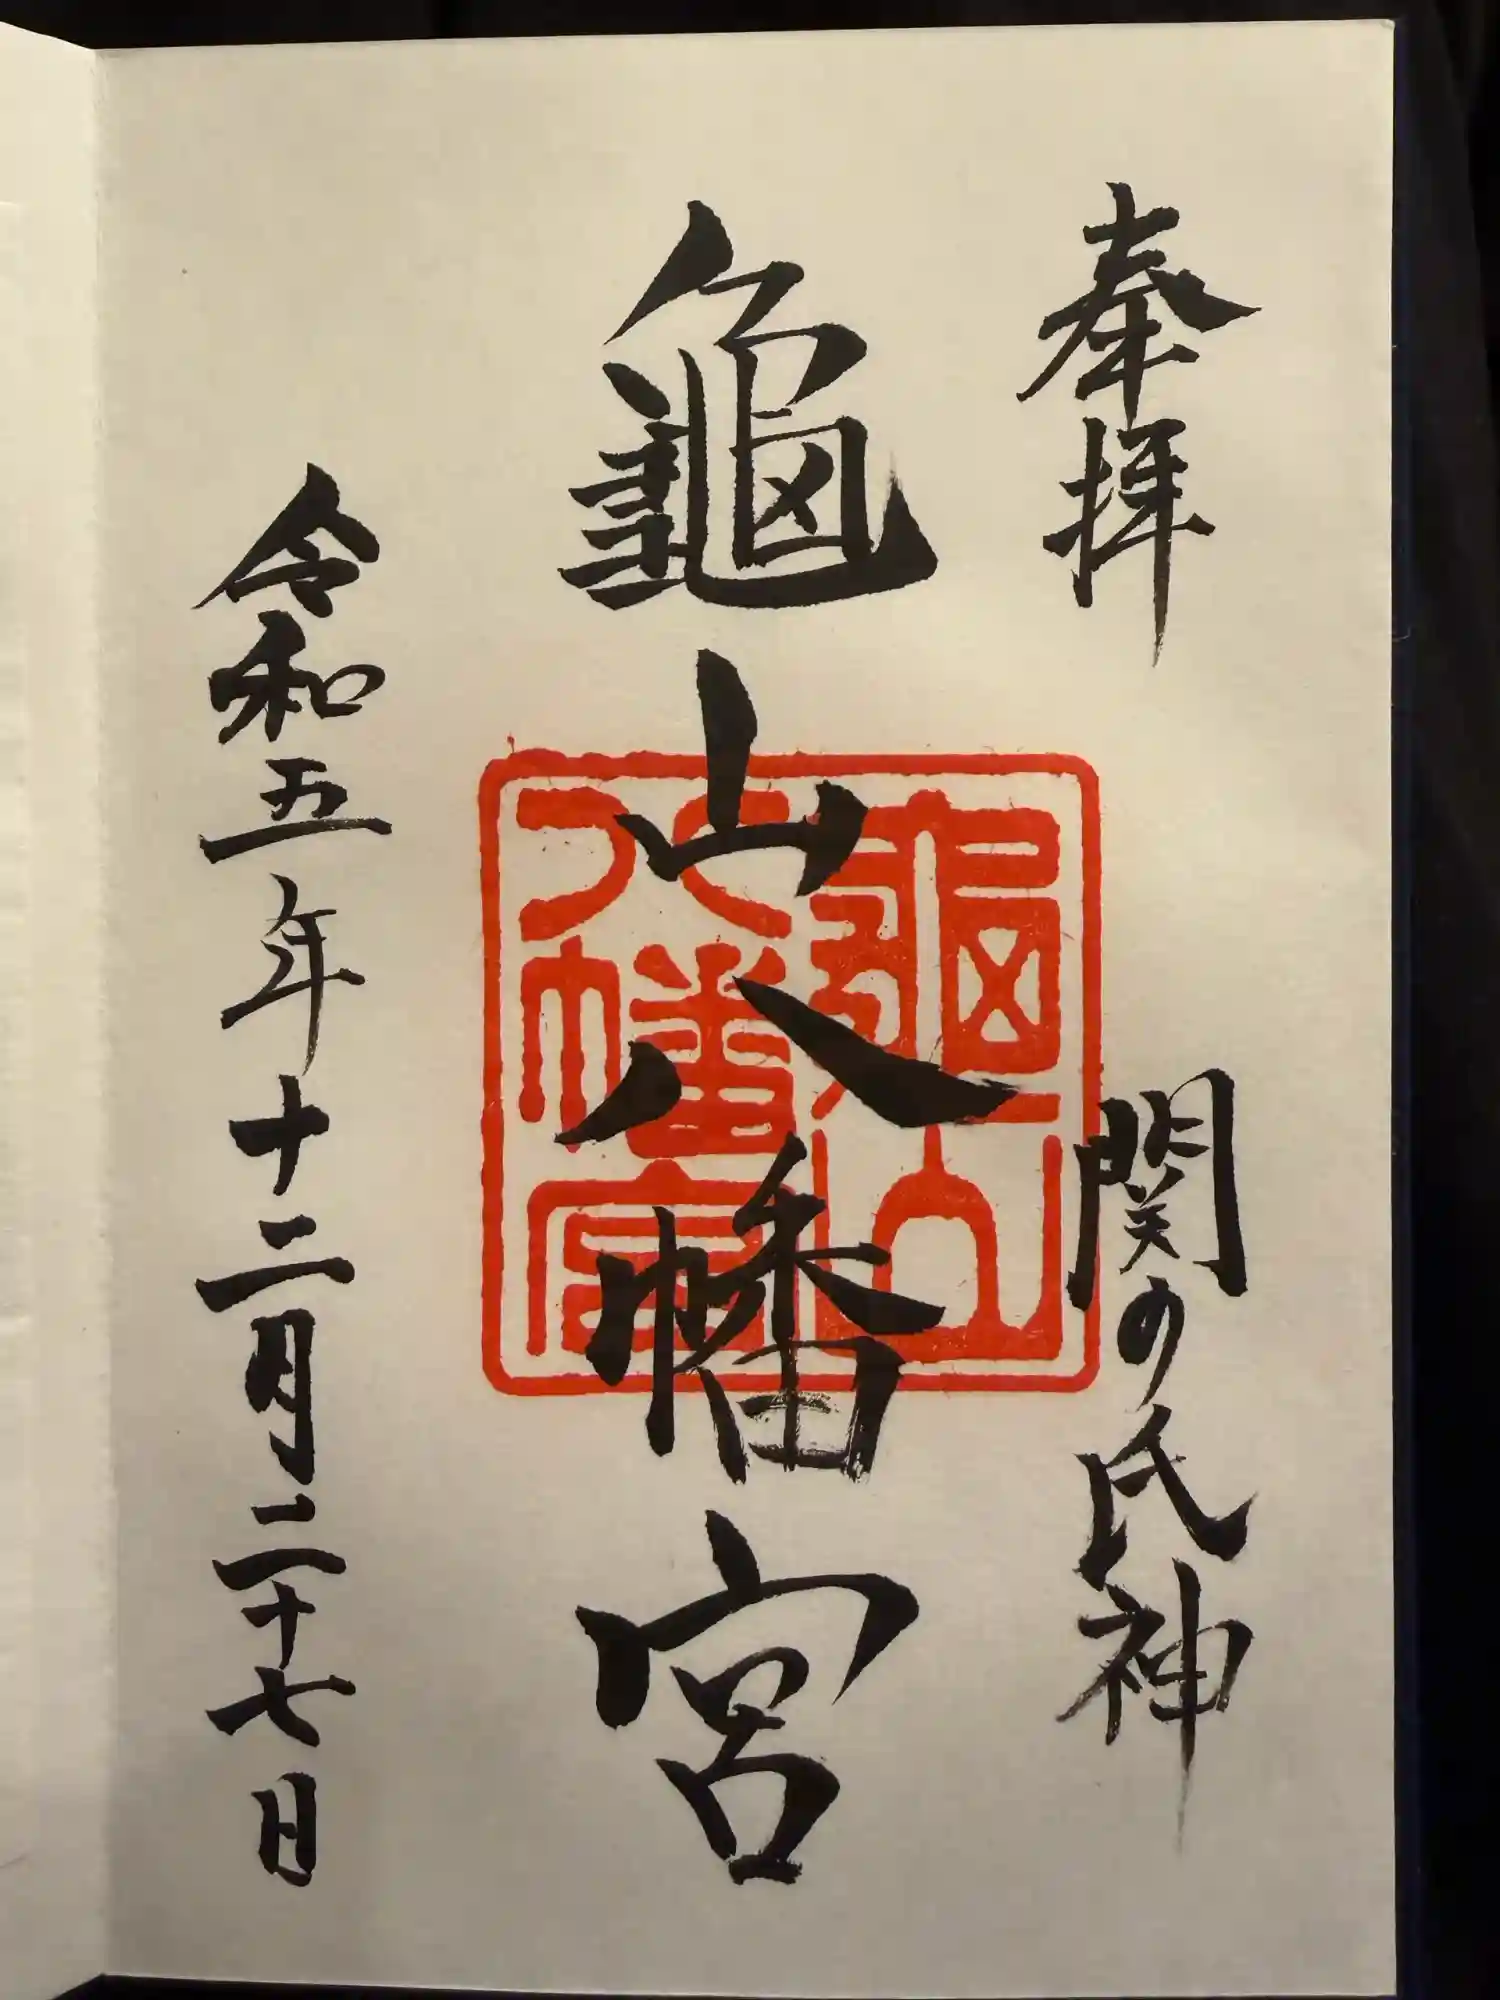 奉拝 関の氏神
龜山八幡宮
龜山
八幡宮
令和五年十二月二十七日